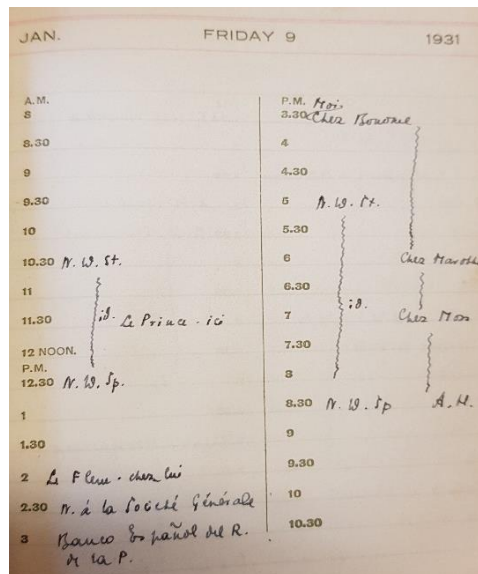 JAN. FRIDAY 9 1931
A.M.
8
8.30
9
9.30
10
10.30 N. W. St.
11
11.30 id. Le Prince - ici
12 NOON.
P.M.
12.30 N. W. Sp.
1
1.30
2 Le Fleuve - chez lui
2.30 N. à la Société Générale
3 Banco Español del R.
de la P.
P.M. Moi
3.30 Chez Bonome
4
4.30
5 N. W. St.
5.30
6 Chez
6.30
7 id. Chez
7.30
8
8.30 N. W. Sp A. H.
9
9.30
10
10.30